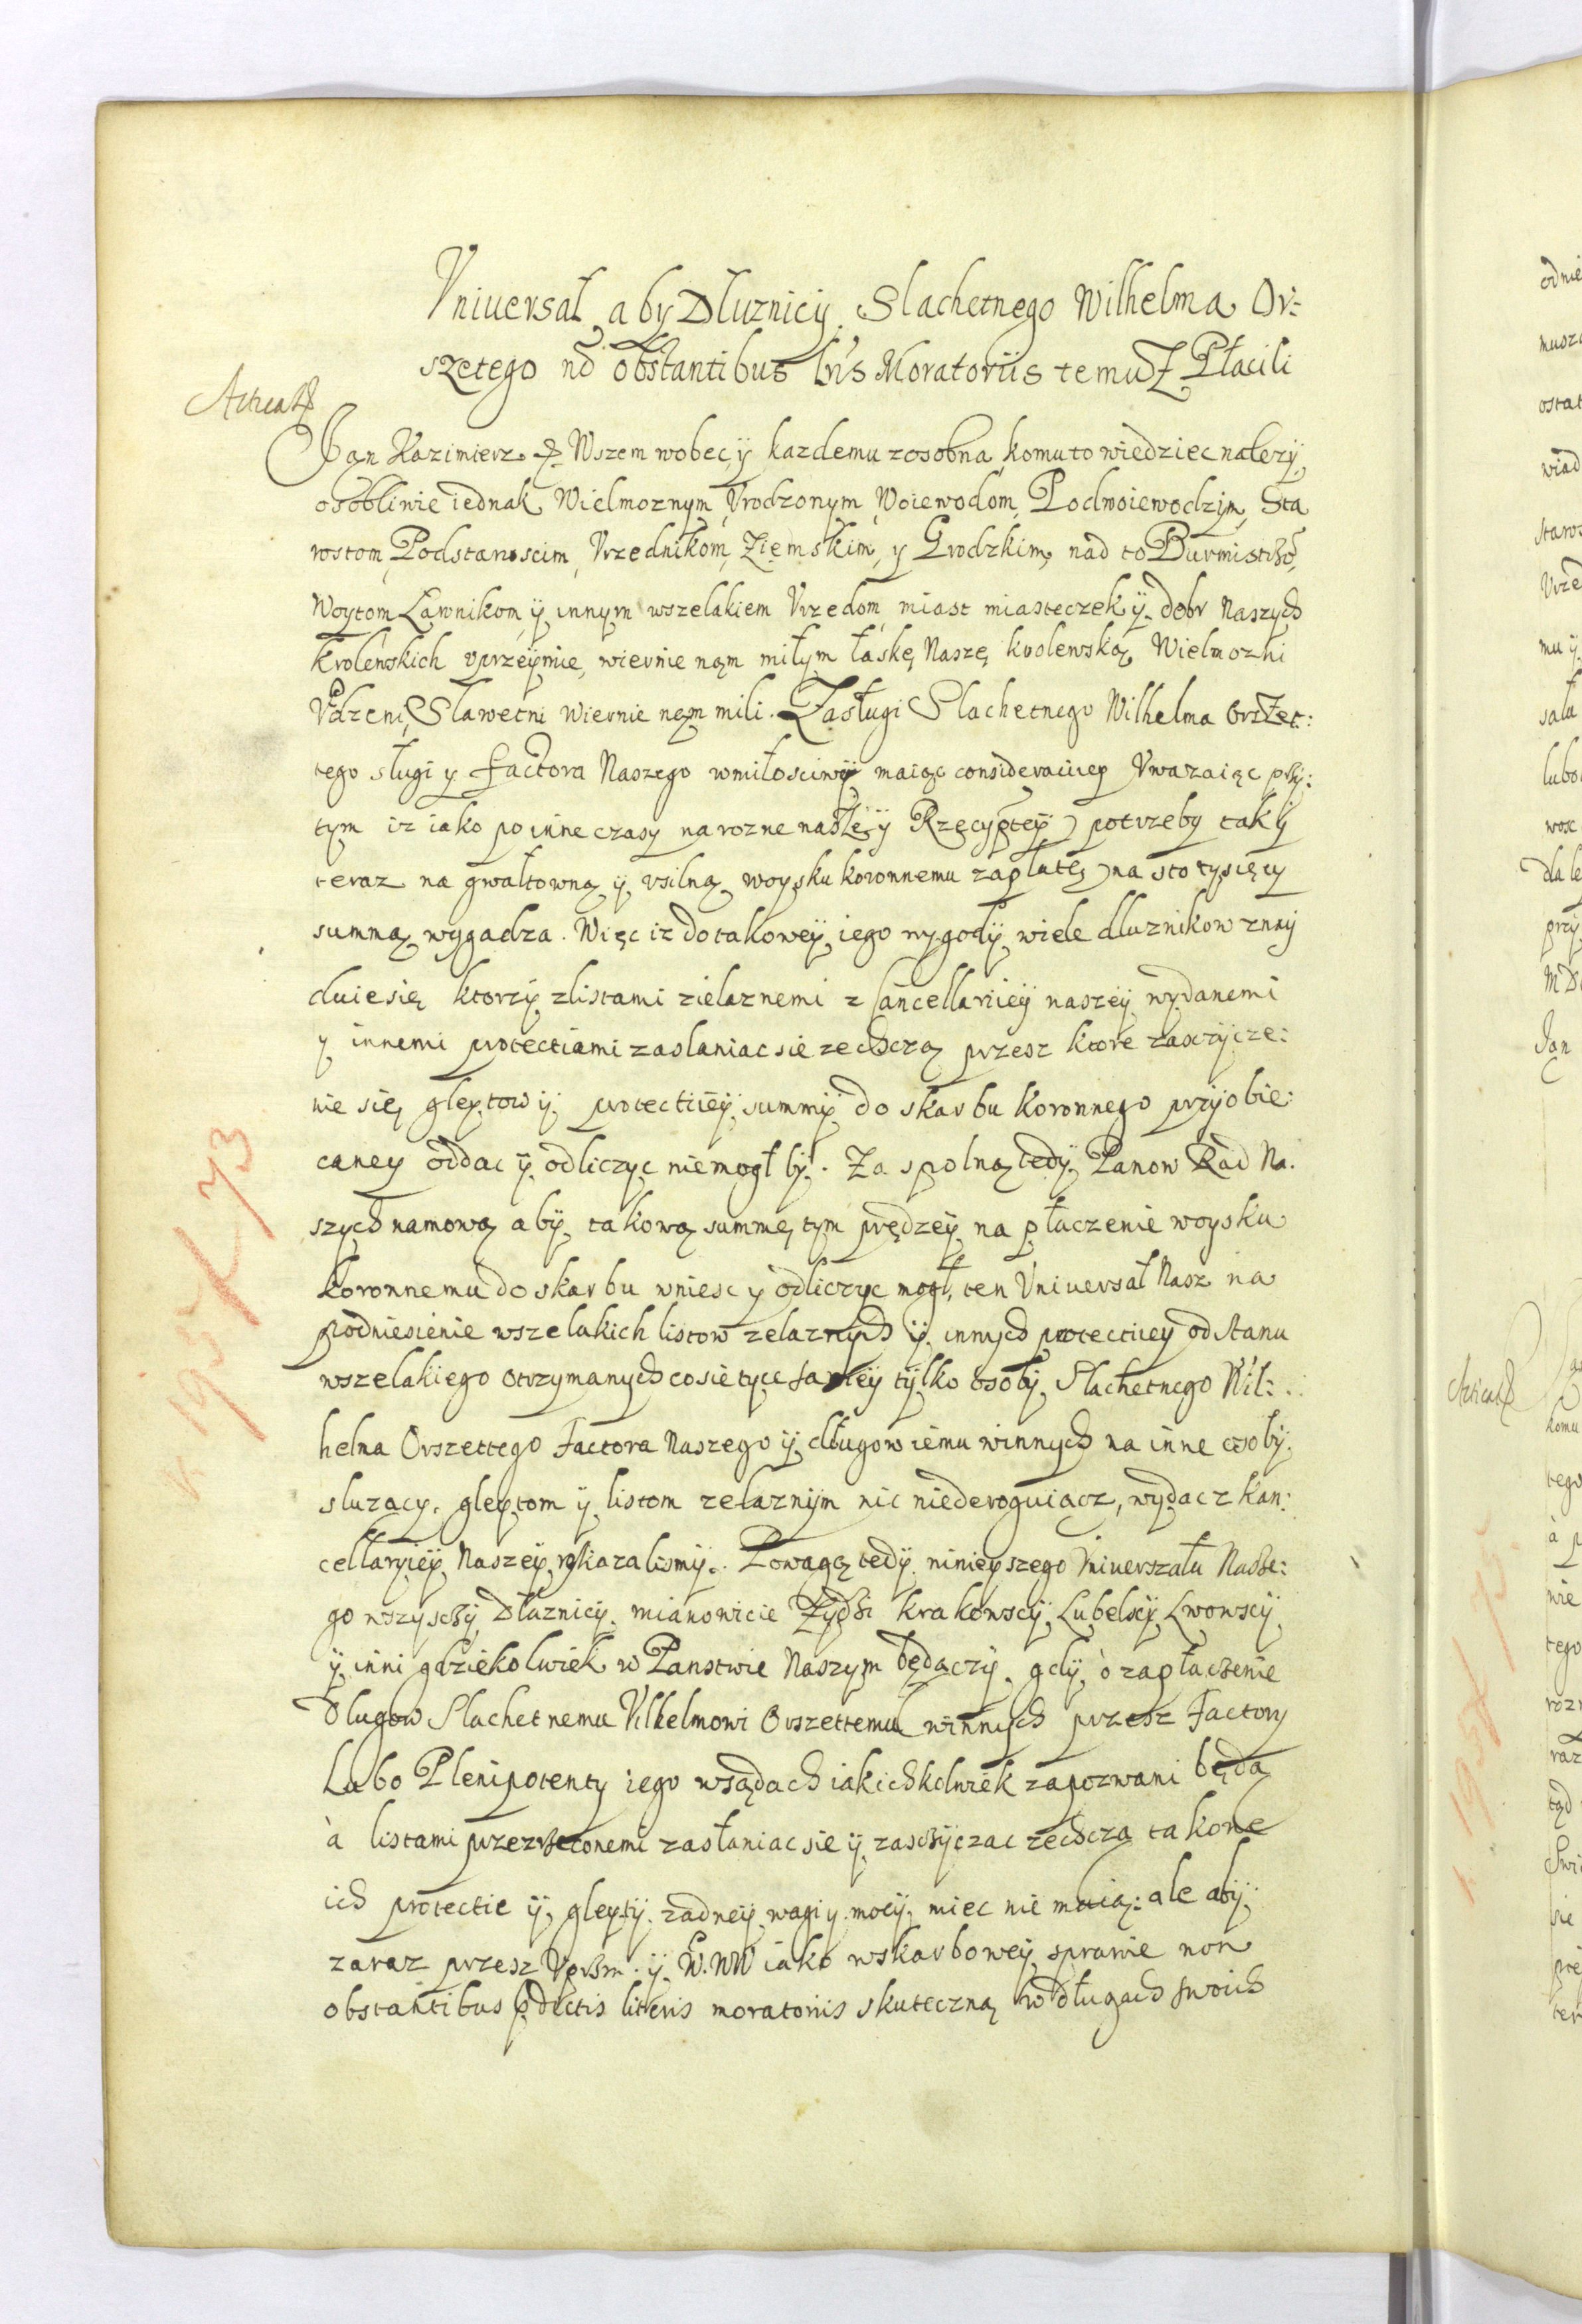 Vniuersał aby Dłuznicy Slachetnego Wilhelma Or:
szetego nō obstantibus lris Moratoriis temuż Płacili
Jan Kazimierz Wszem wobec y kazdemu zosobna komu to wiedziec nalezy,
osobliwie iednak Wielmoznym Vrodzonym Woiewodom, Podwoiewodzym, Sta
rostom, Podstaroscim, Vrzednikom, Ziemskim, y Grodzkim, nad to Burmistrzō,
Woytom Ławnikom ÿ innym wszelakiem Vrzedom miast miasteczek ÿ dobr Naszych
krolewskich vprzeÿmie, wiernie nąm miłym łaskę Naszę krolewską. Wielmozni
Vrdzeni, Sławetni Wiernie nąm mili. Zasługi Slachetnego Wilhelma Orszet:
tego sługi y factora Naszego wmiłosciwÿ maiąc consideratiey Vwazaiąc przy:
tym iz iako po inne czasy na rozne nasze y Rzęcyptey potrzeby tak y
teraz na gwałtowną ÿ vsilną woysku koronnemu zapłatę na sto tysięcy
summą wygadza. Więc iz do takoweÿ iego wygodÿ wiele dluznikow znaÿ
duie się ktorzÿ zlistami zielaznemi z Cancellariieÿ naszeÿ wydanemi
y innemi protectiami zaslaniac sie zechczą przesz ktore zasczÿcze:
nie się gleÿtow ÿ protectiieÿ summÿ do skarbu koronnego przÿobie:
caney oddac ÿ odliczÿc niemogł bÿ. Za spolną tedÿ Panow Rad Na.
szych namową abÿ takową summę tym prędzeÿ na płaczenie woysku
koronnemu do skarbu wniesc ÿ odliczÿc mogł, ten Vniuersał Nasz na
podniesienie wszelakich listow zelaznych ÿ innych protectieÿ od stanu
wszelakiego otrzymanych co sie tycze sameÿ tÿlko osobÿ Slachetnego Wil:
helma Orszettego Factora Naszego ÿ długow iemu winnych na inne osobÿ
sluzacy gleÿtom ÿ listom zelaznÿm nic niederoguiącz, wydac z kan:
cellaryieÿ Naszeÿ rozkazalismÿ. Powagą tedÿ ninieyszego Vniuerszału Nasze:
go wszÿsczÿ dłuznicÿ mianowicie Zÿdzi krakowscÿ Lubelscÿ Lwowscÿ
ÿ inni gdziekolwiek w Panstwie Naszym będączÿ, gdÿ o zapłaczenie
Dlugow Slachetnemu Vilhelmowi Orszettemu winnych przesz Factory
Lubo Plenipotenty iego wsądach iakichkolwiek zapozwani będą
à listami przerzeczonemi zasłaniac sie ÿ zasczÿczac zechczą takowe
ich protectie ÿ gleÿtÿ zadneÿ wagi y mocÿ miec nie maią: ale abÿ
zaraz przesz Vprzm. ÿ W. WW iako wskarboweÿ sprawie non
obstantibus pdictis literis moratoriis skuteczną w długach swoich